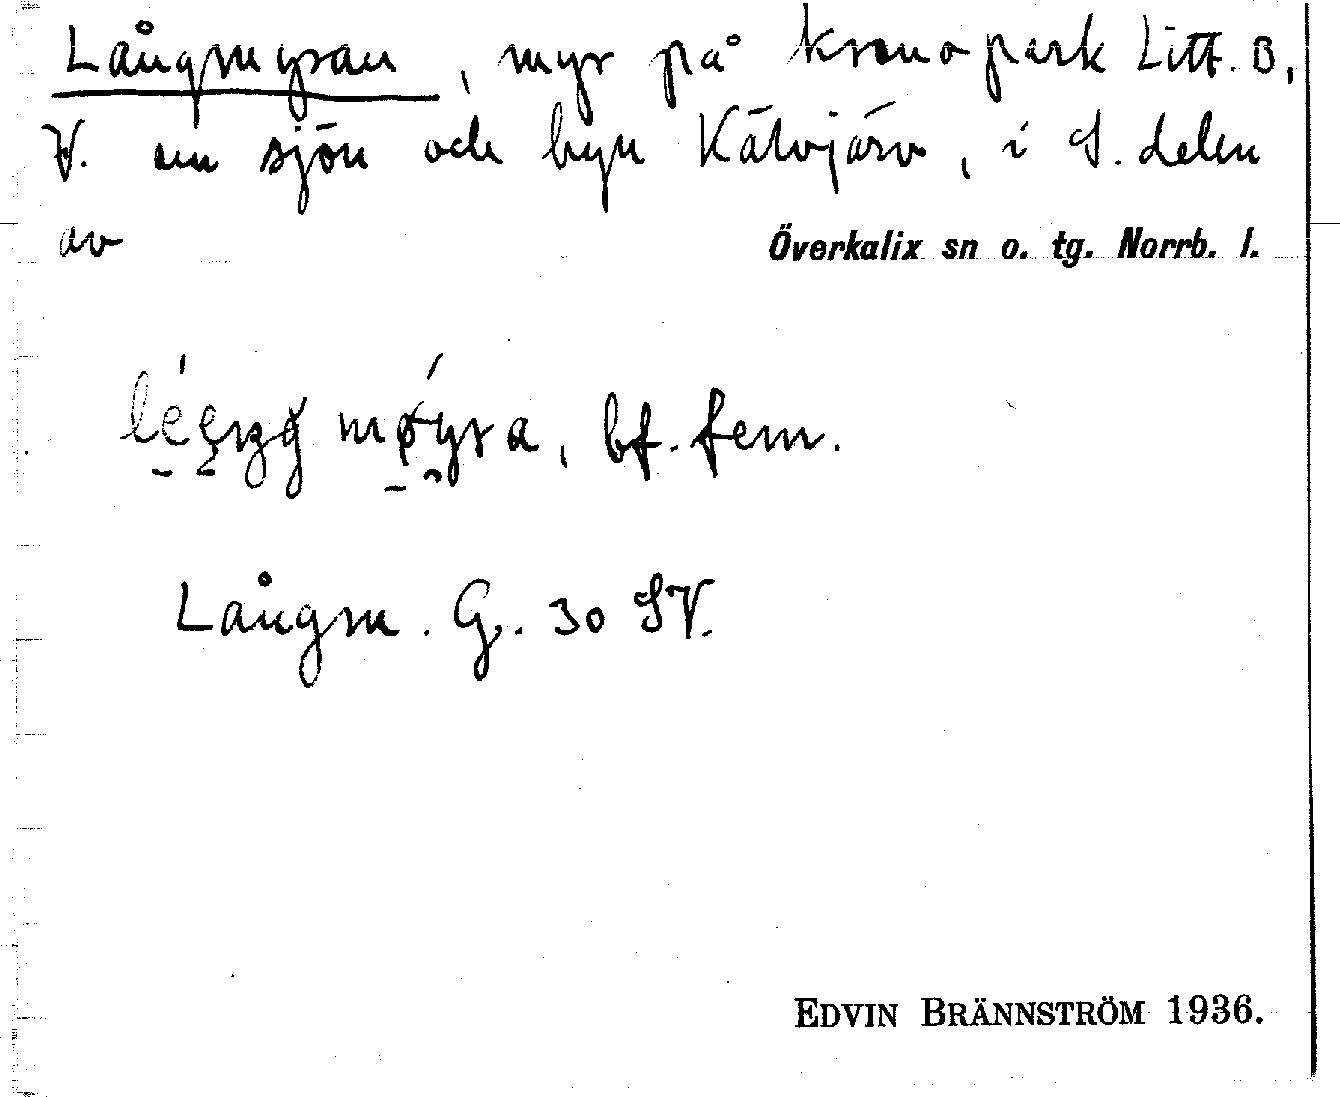 Långmyran, myr på kronopark Litt. B,
V. om sjön och byn Kälvjärv, i S. delen
av Överkalix sn o. tg. Norrb. l.
bf. fem.
Långm. G. 30 SV.
EDVIN BRÄNNSTRÖM 1936.